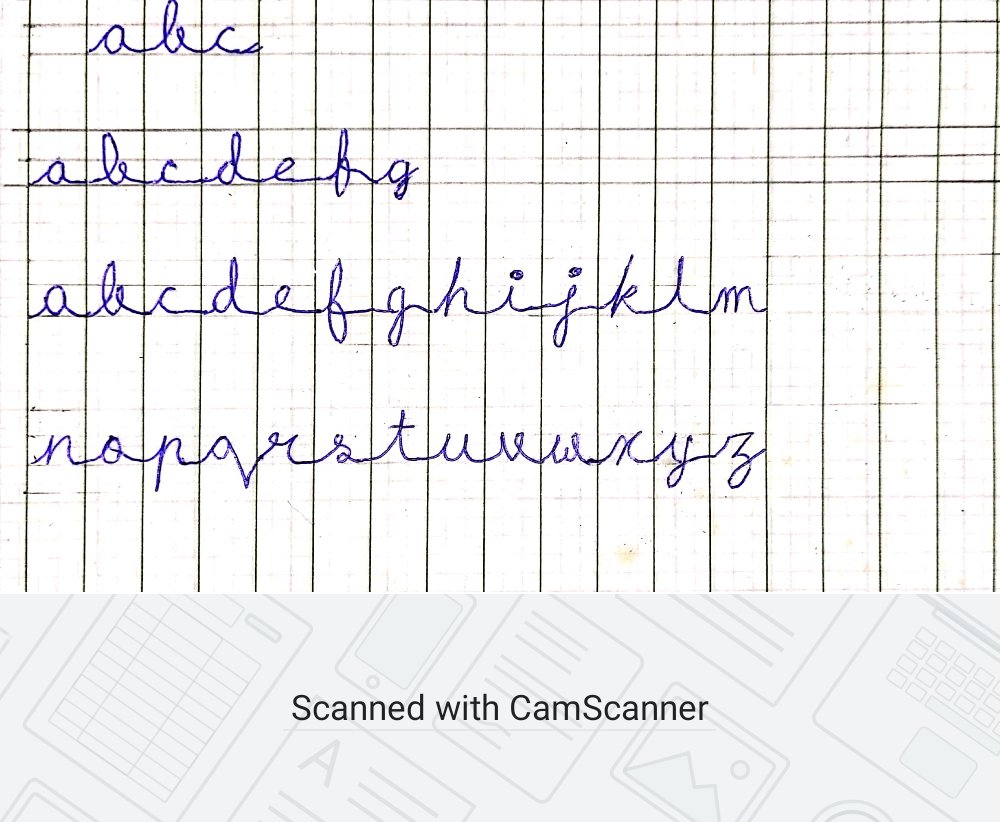 abc
abcdefg
abcdefghijklm
nopqrstuvwxyz
Scanned with CamScanner